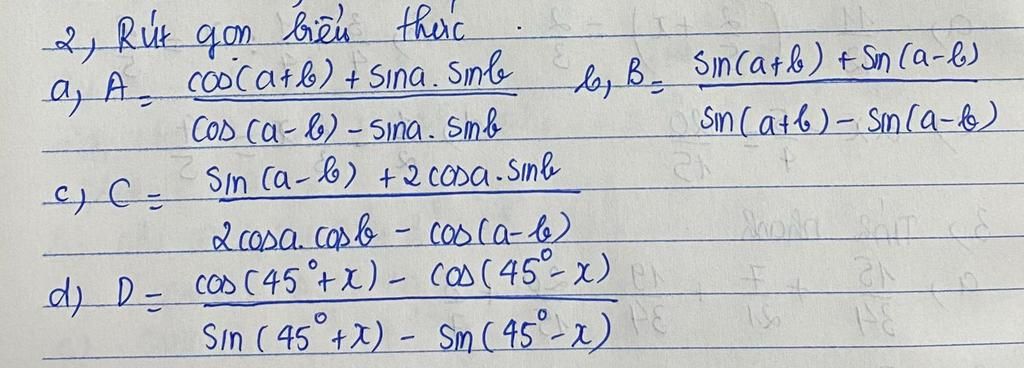 2, Rút gọn biểu thức.
a, A = cos(a+b) + sina. sinb / cos(a-b) - sina. sinb b, B = sin(a+b) + sin(a-b) / sin(a+b) - sin(a-b)
c, C = sin(a-b) + 2cosa. sinb / 2cosa. cosb - cos(a-b)
d) D = cos(45°+x) - cos(45°-x) / sin(45°+x) - sin(45°-x)